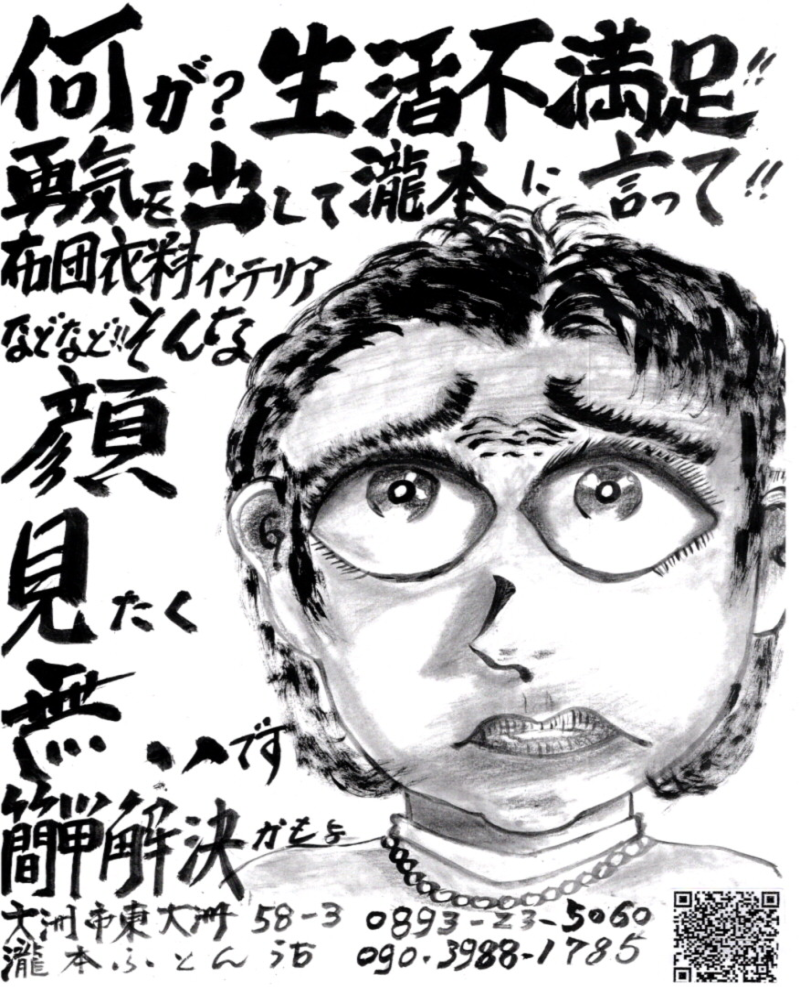 何が?生活不満足!!
勇気を出して瀧本に言って!!
布団衣料インテリア
などなど!!そんな
顔
見たく
無いです
簡単解決かもよ
大洲市東大洲58-3 0893-23-5060
瀧本ふとん店 090.3988-1785